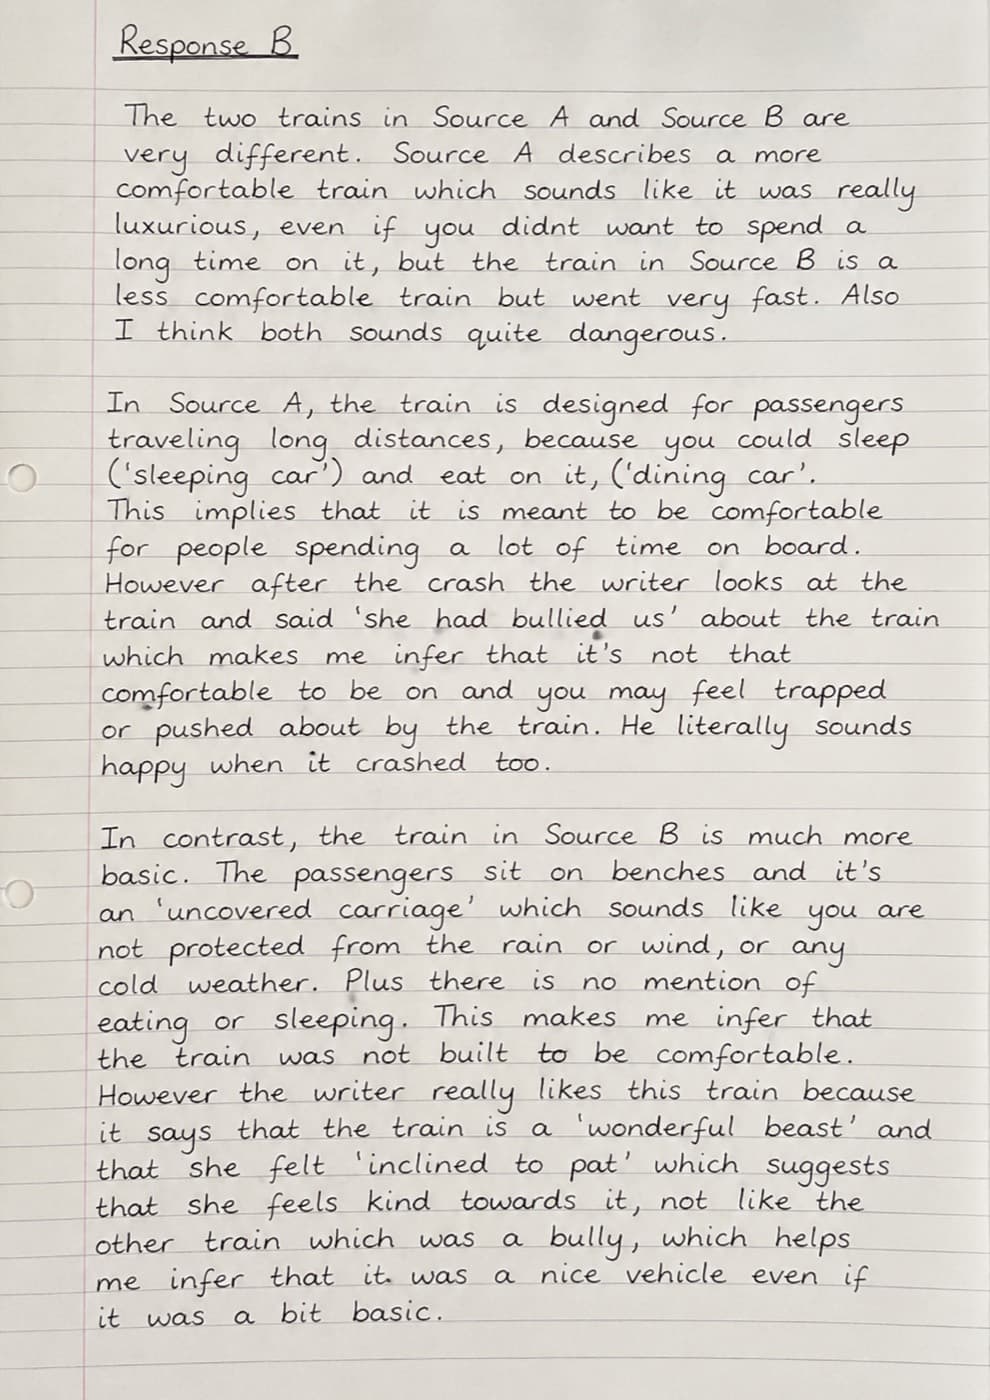 Response B
The two trains in Source A and Source B are
very different. Source A describes a more
comfortable train which sounds like it was really
luxurious, even if you didnt want to spend a
long time on it, but the train in Source B is a
less comfortable train but went very fast. Also
I think both sounds quite dangerous.
In Source A, the train is designed for passengers
traveling long distances, because you could sleep
('sleeping car') and eat on it, ('dining car'.
This implies that it is meant to be comfortable
for people spending a lot of time on board.
However after the crash the writer looks at the
train and said 'she had bullied us' about the train
which makes me infer that it's not that
comfortable to be on and you may feel trapped
or pushed about by the train. He literally sounds
happy when it crashed too.
In contrast, the train in Source B is much more
basic. The passengers sit on benches and it's
an 'uncovered carriage' which sounds like you are
not protected from the rain or wind, or any
cold weather. Plus there is no mention of
eating or sleeping. This makes me infer that
the train was not built to be comfortable.
However the writer really likes this train because
it says that the train is a 'wonderful beast' and
that she felt 'inclined to pat' which suggests
that she feels kind towards it, not like the
other train which was a bully, which helps
me infer that it was a nice vehicle even if
it was a bit basic.